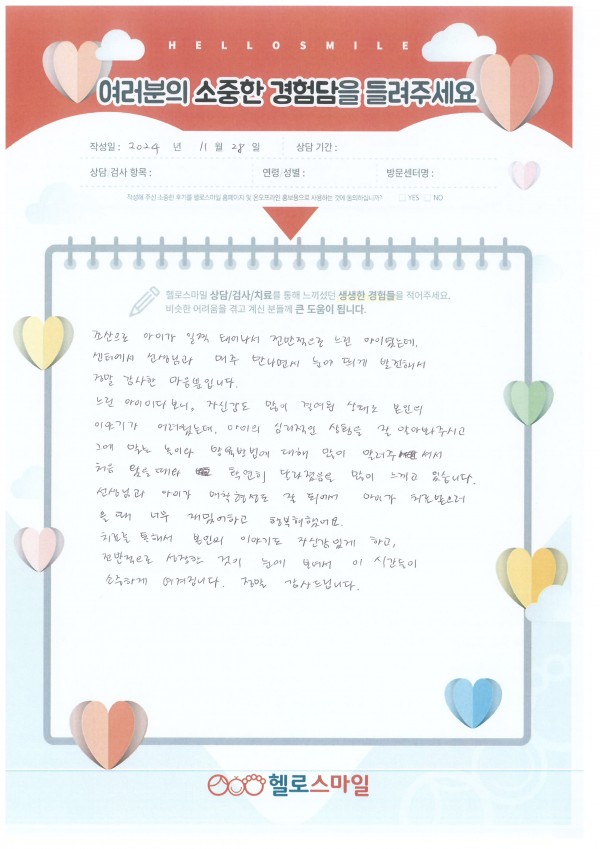 HELLOSMILE
여러분의 소중한 경험담을 들려주세요
작성일 : 2024 년 11 월 28 일 상담 기간 :
상담 검사 항목 : 연령/성별 : 방문센터명 :
작성해 주신 소중한 후기를 헬로스마일 홈페이지 및 온오프라인 홍보용으로 사용하는 것에 동의하십니까? YES NO
헬로스마일 상담/검사/치료를 통해 느끼셨던 생생한 경험들을 적어주세요.
비슷한 어려움을 겪고 계신 분들께 큰 도움이 됩니다.
조산으로 아이가 일찍 태어나서 전반적으로 느린 아이였는데,
센터에서 선생님과 매주 만나면서 눈에 띄게 발전해서
정말 감사한 마음뿐입니다.
느린 아이이다 보니, 자신감도 많이 결여된 상태로 본인의
이야기가 어려웠는데, 아이의 심리적인 상황을 잘 알아봐주시고
그에 맞는 놀이와 양육방법에 대해 많이 알려주셔서
처음 왔을때와 확연히 달라졌음을 많이 느끼고 있습니다.
선생님과 아이가 애착형성도 잘 되어서 아이가 치료받으러
올 때 너무 재밌어하고 행복해했어요.
치료를 통해서 본인의 이야기도 자신감있게 하고,
전반적으로 성장한 것이 눈에 보여서 이 시간들이
소중하게 여겨집니다. 정말 감사드립니다.
헬로스마일